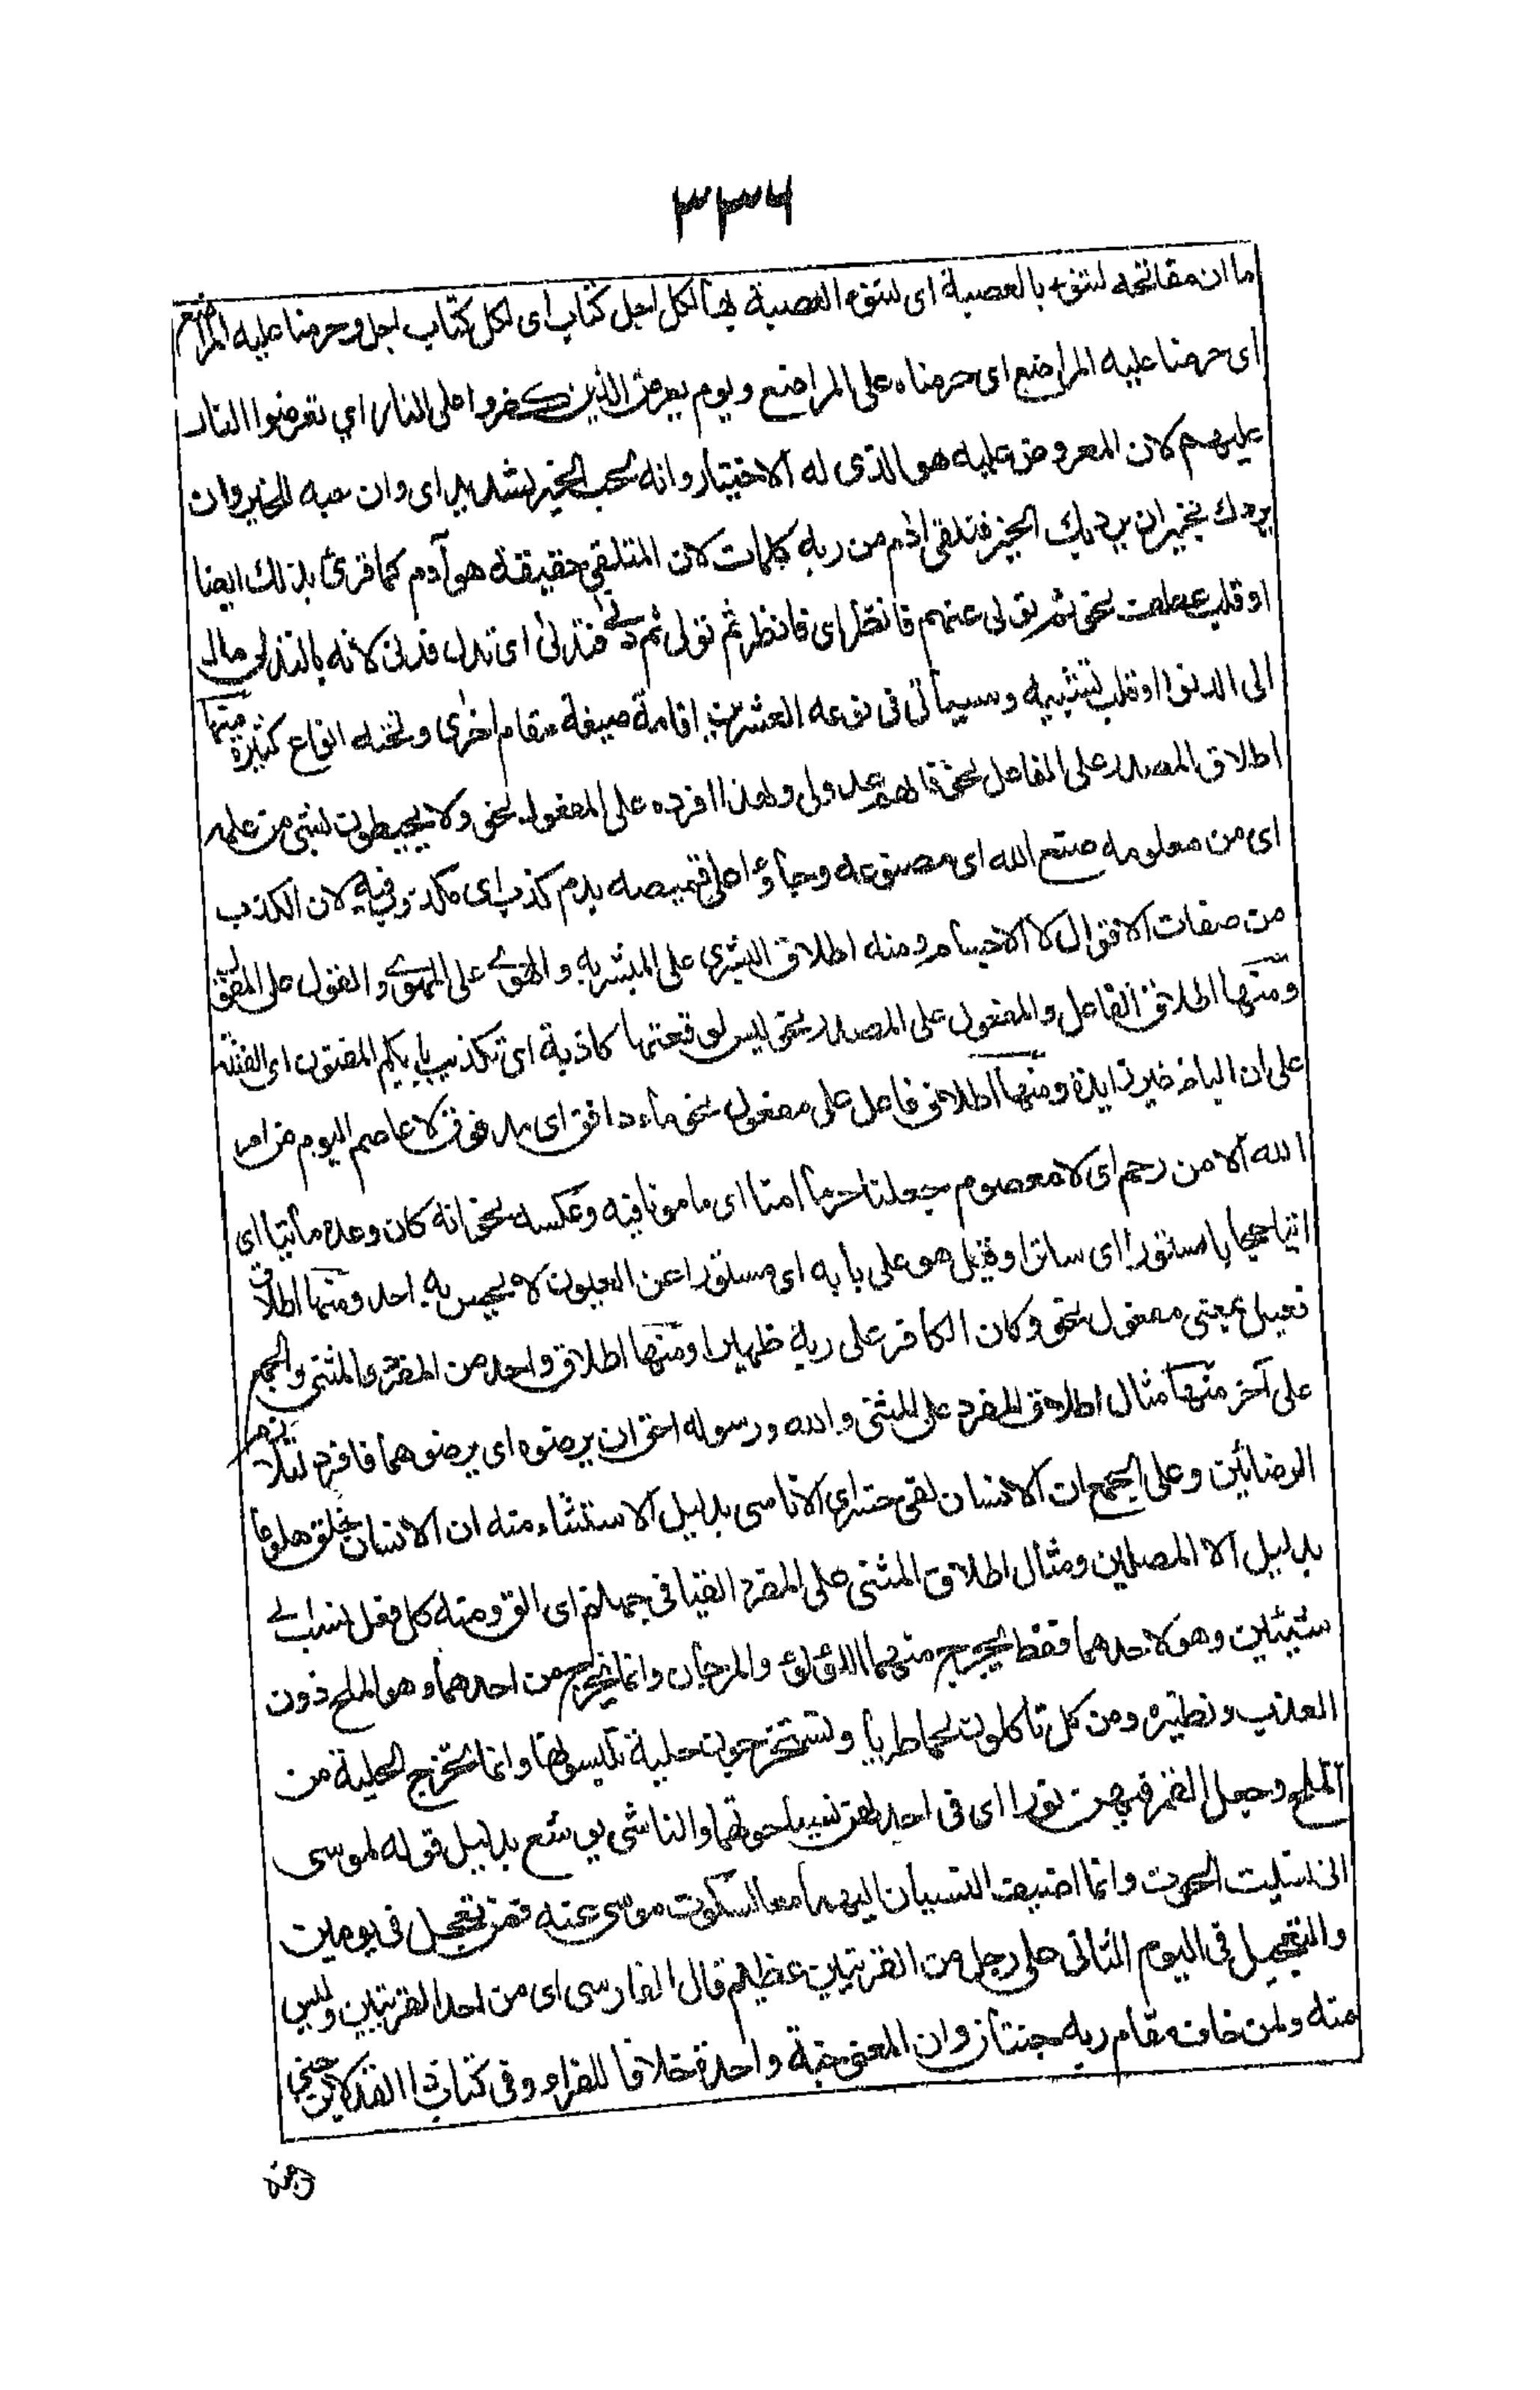 ٣٣٤
ما ان مفاتحه لتنوء بالعصبة اى لتنوء العصبة بها لكل اجل كتاب اى لكل كتاب اجل وحرمنا عليه المراضع
اى حرمنا عليه المراضع اى حرمناه على المراضع ويوم يعرض الذين كفروا على النار اي تعرضوا النار
عليهم لان المعروض عليه هو الذى له الاختيار وانه لحب الخير لشديد اى وان حبه للخير وان
يردك بخير ان يرد بك الخير فتلقى ادم من ربه كلمات لان المتلقي حقيقة هو آدم كما قرئ بذلك ايضا
او قلب عطف نحو ثم تول عنهم فانظر اى فانظر ثم تولى ثم دنى فتدلى اى تدلى فدنى لانه بالتدلى مال
الى الدنو او قلب تشبيه وسيأتى فى نوعه العشرين اقامة صيغة مقام اخرى وتحته انواع كثيرة منها
اطلاق المصدر على الفاعل نحو فانهم عدو لى ولهذا افرده على المفعول نحو ولا يحيطون بشئ من علمه
اى من معلومه صنع الله اى مصنوعه وجاؤا على قميصه بدم كذب اى مكذوب فيه لان الكذب
من صفات الاقوال لا الاجسام ومنه اطلاق البشرى على المبشر به والهوى على المهوى والقول على المقول
ومنها اطلاق الفاعل والمفعول على المصدر نحو ليس لوقعتها كاذبة اى تكذيب بايكم المفتون اى الفتنة
على ان الباء غير زايدة ومنها اطلاق فاعل على مفعول نحو ماء دافق اى مدفوق لا عاصم اليوم من امر
الله الا من رحم اى لا معصوم جعلنا حرما امنا اى مامونا فيه وعكسه نحو انه كان وعده مأتيا اى
اتيا حجابا مستورا اى ساترا وقيل هو على بابه اى مستورا عن العيون لا يحس به احد ومنها اطلاق
فعيل بمعنى مفعول نحو وكان الكافر على ربه ظهيرا ومنها اطلاق واحد من المفرد والمثنى والجمع
على آخر منها مثال اطلاق المفرد على المثنى والله ورسوله احق ان يرضوه اى يرضوهما فافرد لتلازم
الرضائين وعلى الجمع ان الانسان لفى خسر اى الاناسى بدليل الاستثناء منه ان الانسان خلق هلوعا
بدليل الا المصلين ومثال اطلاق المثنى على المفرد القيا فى جهنم اى الق ومنه كل فعل نسب الى
شيئين وهو لاحدهما فقط يخرج منهما اللؤلؤ والمرجان وانما يخرج من احدهما وهو الملح دون
العذب ونظيره ومن كل تاكلون لحما طريا وتستخرجون حلية تلبسونها وانما تخرج الحلية من
الملح وجعل القمر فيهن نورا اى فى احديهن نسيا حوتهما والناسى يوشع بدليل قوله لموسى
انى نسيت الحوت وانما اضيف النسيان اليهما معا لسكوت موسى عنه فمن تعجل فى يومين
والتعجيل فى اليوم الثانى على رجل من القريتين عظيم قال الفارسى اى من احد القريتين وليس
منه ولمن خاف مقام ربه جنتان وان المعنى جنة واحدة خلافا للفراء وفى كتاب ذا القد لابن جني
ومنه